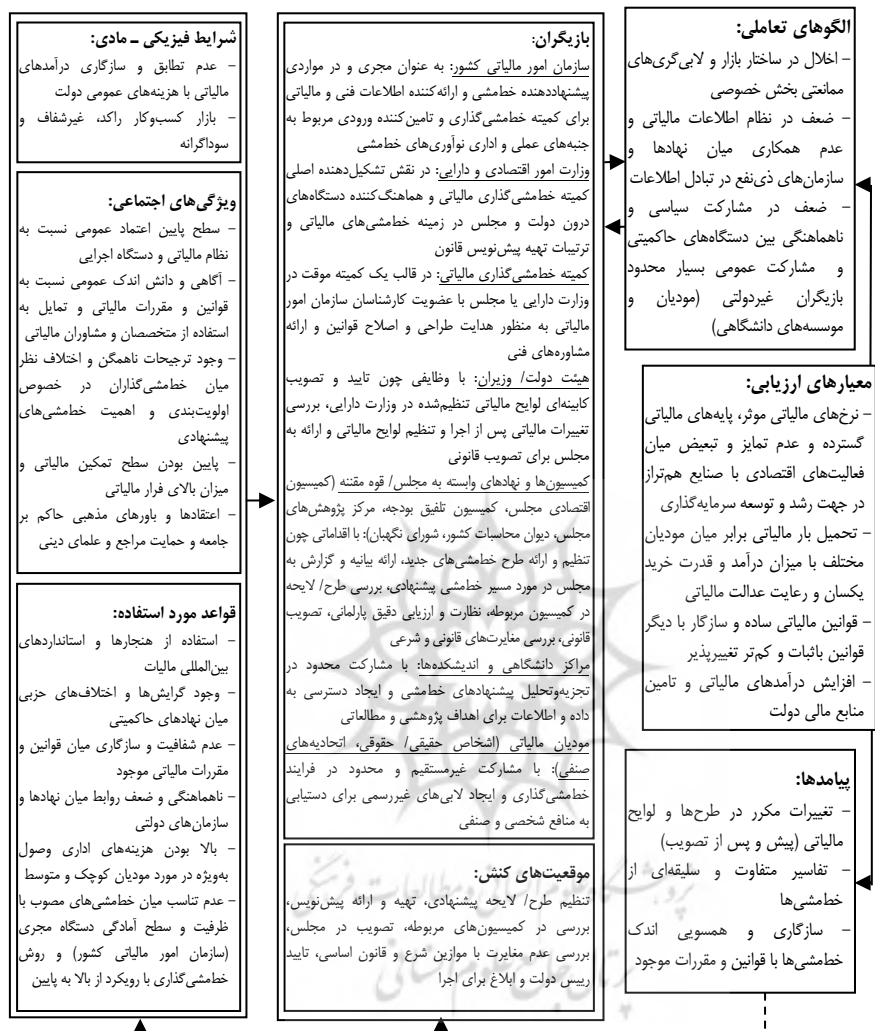 شرایط فیزیکی ـ مادی:
– عدم تطابق و سازگاری درآمدهای
مالیاتی با هزینه‌های عمومی دولت
– بازار کسب‌وکار راکد، غیرشفاف و
سوداگرانه
ویژگی‌های اجتماعی:
– سطح پایین اعتماد عمومی نسبت به
نظام مالیاتی و دستگاه اجرایی
– آگاهی و دانش اندک عمومی نسبت به
قوانین و مقررات مالیاتی و تمایل به
استفاده از متخصصان و مشاوران مالیاتی
– وجود ترجیحات ناهمگن و اختلاف نظر
میان خط‌مشی‌گذاران در خصوص
اولویت‌بندی و اهمیت خط‌مشی‌های
پیشنهادی
– پایین بودن سطح تمکین مالیاتی و
میزان بالای فرار مالیاتی
– اعتقادها و باورهای مذهبی حاکم بر
جامعه و حمایت مراجع و علمای دینی
قواعد مورد استفاده:
– استفاده از هنجارها و استانداردهای
بین‌المللی مالیات
– وجود گرایش‌ها و اختلاف‌های حزبی
میان نهادهای حاکمیتی
– عدم شفافیت و سازگاری میان قوانین و
مقررات مالیاتی موجود
– ناهماهنگی و ضعف روابط میان نهادها و
سازمان‌های دولتی
– بالا بودن هزینه‌های اداری وصول
به‌ویژه در مورد مودیان کوچک و متوسط
– عدم تناسب میان خط‌مشی‌های مصوب با
ظرفیت و سطح آمادگی دستگاه مجری
(سازمان امور مالیاتی کشور) و روش
خط‌مشی‌گذاری با رویکرد از بالا به پایین
بازیگران:
سازمان امور مالیاتی کشور: به عنوان مجری و در مواردی
پیشنهاددهنده خط‌مشی و ارائه‌کننده اطلاعات فنی و مالیاتی
برای کمیته خط‌مشی‌گذاری و تامین‌کننده ورودی مربوط به
جنبه‌های عملی و اداری نوآوری‌های خط‌مشی
وزارت امور اقتصادی و دارایی: در نقش تشکیل‌دهنده اصلی
کمیته خط‌مشی‌گذاری مالیاتی و هماهنگ‌کننده دستگاه‌های
درون دولت و مجلس در زمینه خط‌مشی‌های مالیاتی و
ترتیبات تهیه پیش‌نویس قانون
کمیته خط‌مشی‌گذاری مالیاتی: در قالب یک کمیته موقت در
وزارت دارایی یا مجلس با عضویت کارشناسان سازمان امور
مالیاتی به منظور هدایت طراحی و اصلاح قوانین و ارائه
مشاوره‌های فنی
هیئت دولت/ وزیران: با وظایفی چون تایید و تصویب
کابینه‌ای لوایح مالیاتی تنظیم‌شده در وزارت دارایی، بررسی
تغییرات مالیاتی پس از اجرا و تنظیم لوایح مالیاتی و ارائه به
مجلس برای تصویب قانونی
کمیسیون‌ها و نهادهای وابسته به مجلس/ قوه مقننه (کمیسیون
اقتصادی مجلس، کمیسیون تلفیق بودجه، مرکز پژوهش‌های
مجلس، دیوان محاسبات کشور، شورای نگهبان): با اقداماتی چون
تنظیم و ارائه طرح خط‌مشی‌های جدید، ارائه بیانیه و گزارش به
مجلس در مورد مسیر خط‌مشی پیشنهادی، بررسی طرح/ لایحه
در کمیسیون مربوطه، نظارت و ارزیابی دقیق پارلمانی، تصویب
قانونی، بررسی مغایرت‌های قانونی و شرعی
مراکز دانشگاهی و اندیشکده‌ها: با مشارکت محدود در
تجزیه‌وتحلیل پیشنهادهای خط‌مشی و ایجاد دسترسی به
داده و اطلاعات برای اهداف پژوهشی و مطالعاتی
مودیان مالیاتی (اشخاص حقیقی/ حقوقی، اتحادیه‌های
صنفی): با مشارکت غیرمستقیم و محدود در فرایند
خط‌مشی‌گذاری و ایجاد لابی‌های غیررسمی برای دستیابی
به منافع شخصی و صنفی
موقعیت‌های کنش:
تنظیم طرح/ لایحه پیشنهادی، تهیه و ارائه پیش‌نویس،
بررسی در کمیسیون‌های مربوطه، تصویب در مجلس،
بررسی عدم مغایرت با موازین شرع و قانون اساسی، تایید
رییس دولت و ابلاغ برای اجرا
الگوهای تعاملی:
– اخلال در ساختار بازار و لابی‌گری‌های
ممانعتی بخش خصوصی
– ضعف در نظام اطلاعات مالیاتی و
عدم همکاری میان نهادها و
سازمان‌های ذی‌نفع در تبادل اطلاعات
– ضعف در مشارکت سیاسی و
ناهماهنگی بین دستگاه‌های حاکمیتی
و مشارکت عمومی بسیار محدود
بازیگران غیردولتی (مودیان و
موسسه‌های دانشگاهی)
معیارهای ارزیابی:
– نرخ‌های مالیاتی موثر، پایه‌های مالیاتی
گسترده و عدم تمایز و تبعیض میان
فعالیت‌های اقتصادی با صنایع هم‌تراز
در جهت رشد و توسعه سرمایه‌گذاری
– تحمیل بار مالیاتی برابر میان مودیان
مختلف با میزان درآمد و قدرت خرید
یکسان و رعایت عدالت مالیاتی
– قوانین مالیاتی ساده و سازگار با دیگر
قوانین باثبات و کم‌تر تغییرپذیر
– افزایش درآمدهای مالیاتی و تامین
منابع مالی دولت
پیامدها:
– تغییرات مکرر در طرح‌ها و لوایح
مالیاتی (پیش و پس از تصویب)
– تفاسیر متفاوت و سلیقه‌ای از
خط‌مشی‌ها
– سازگاری و همسویی اندک
خط‌مشی‌ها با قوانین و مقررات موجود
پژوهشگاه علوم انسانی و مطالعات فرهنگی
پرتال جامع علوم انسانی